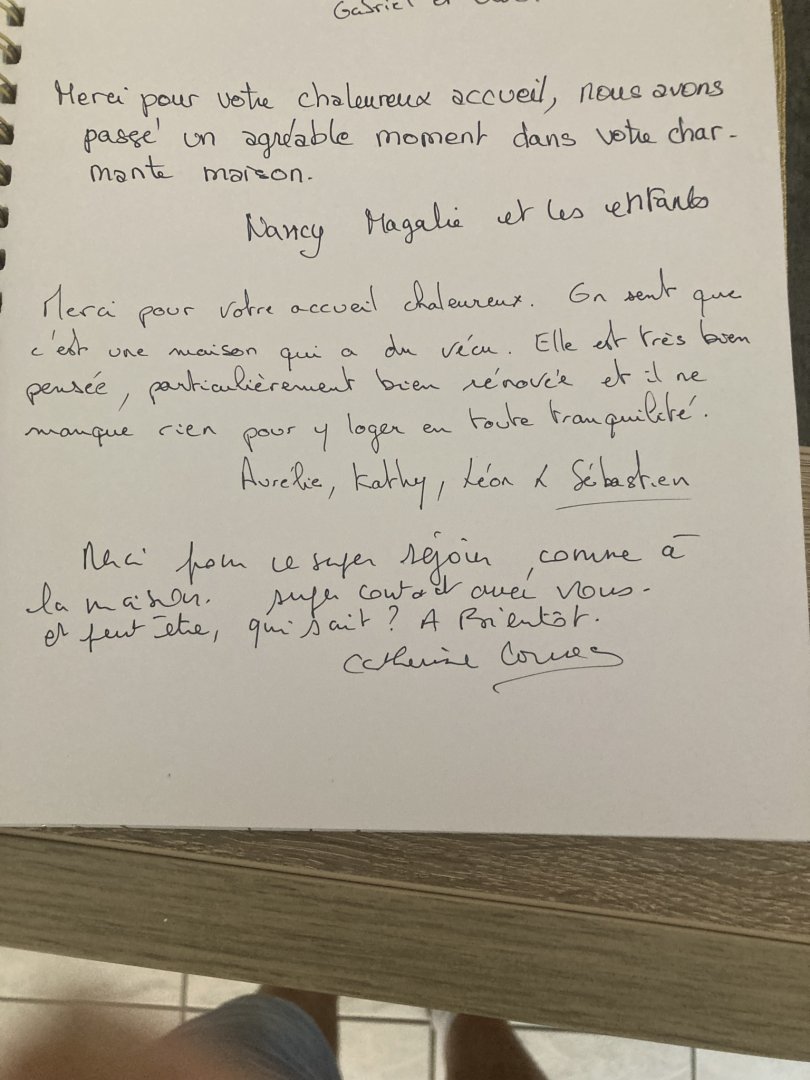 Gabriel et
Merci pour votre chaleureux accueil, nous avons
passé un agréable moment dans votre char-
mante maison.
Nancy Magalie et les enfants
Merci pour votre accueil chaleureux. On sent que
c'est une maison qui a du vécu. Elle est très bien
pensée, particulièrement bien rénovée et il ne
manque rien pour y loger en toute tranquilité.
Aurélie, Kathy, Léon & Sébastien
Merci pour ce super séjour, comme à
la maison. super contact avec vous.
et peut être, qui sait ? A Bientôt.
Catherine